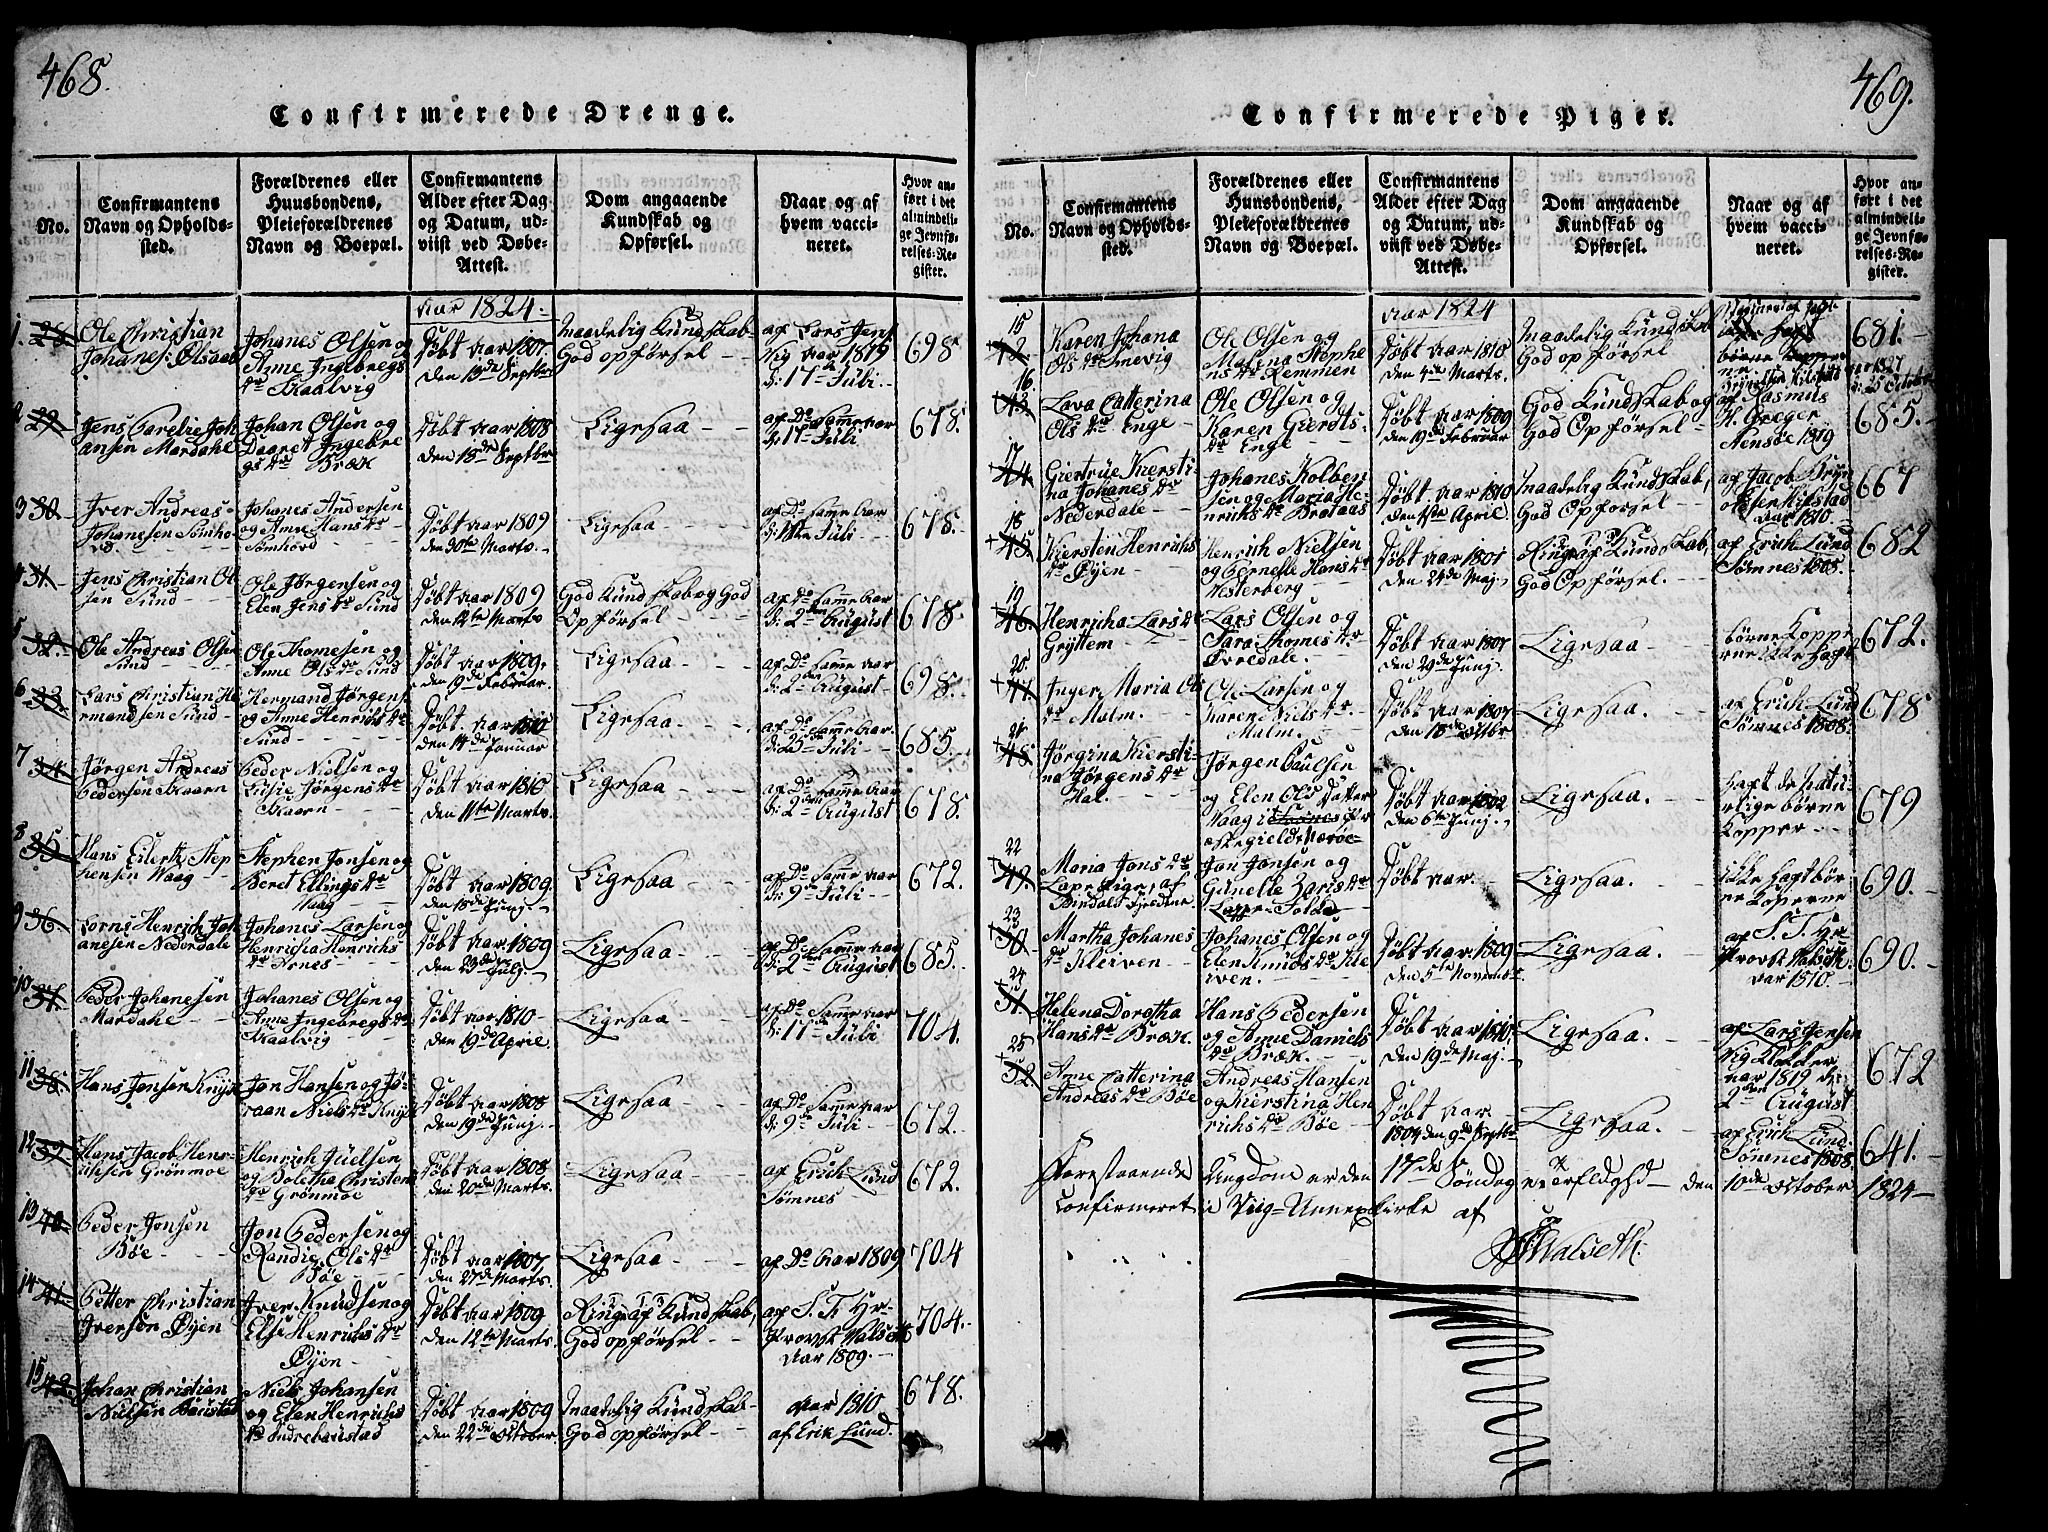 468.
Confirmerede Drenge.
No.
Confirmantens
Navn og Opholds-
sted.
Forældrenes eller
Huusbondens,
Pleieforældrenes
Navn og Boepæl.
Confirmantens
Alder efter Dag
og Datum, ud-
viist ved Døbe-
Attest.
Dom angaaende
Kundskab og
Opførsel.
Naar og af
hvem vacci-
neret.
Hvor an-
ført i det
almindeli-
ge Jevnfø-
relses-Re-
gister.
Aar 1824.
1. 28
Ole Christian
Johanes: Olsaab
Johanes Olsen og
Anne Ingebregs
dr Kaalvig
Døbt Aar 1807.
den 13de Septbr
Maadelig Kundskab
God opførsel
af Lars Jens
Vig Aar 1819
d: 17de Juli
698
2 29
Jens Parelie Joh
ansen Mardahl
Johan Olsen og
Daaret Ingebre
gs dr Bræk
Døbt Aar 1808
den 18de Septbr
Ligesaa
af Do Samme Aar
d: 17de Juli
678.
3 30
Iver Andreas
Johanesen Sømho
vd.
Johanes Andersen
og Anne Hans dr
Sømhovd
Døbt Aar 1809
den 30te Marts.
Ligesaa
af Do samme Aar
d: 18de Juli
678.
4 31
Jens Christian Ol
sen Sund
Ole Jørgensen og
Elen Jens dr Sund
Døbt Aar 1809
den 12te Marts
God Kundskab og God
Opførsel
af Do Samme Aar
d: 2den August
678
5 32
Ole Andreas Olsen
Sund
Ole Thomesen og
Anne Ols dr Sund
Døbt Aar 1809.
den 19de Februar.
Ligesaa
af Do Samme Aar
d: 2den August
698.
6 33
Lars Christian He
rmandsen Sund
Hermand Jørgens
og Anne Henrichs dr
Sund
Døbt Aar 1810
den 14de Januar
Ligesaa
af Do Samme Aar
d: 25de Juli
685.
7 34
Jørgen Andreas
Pedersen Skaarn
Peder Nielsen og
Lusie Jørgens dr
Skaarn
Døbt Aar 1810
den 11te Marts.
Ligesaa
af Do Samme Aar
d: 2den August
678.
8 35
Hans Eilertz Step
hensen Waag
Stephen Jonsen og
Beret Ellings dr
Waag
Døbt Aar 1809.
den 18de Junj.
Ligesaa
af Do Samme Aar
d: 9de Juli
672.
9 36
Lorns Henrich Joh
anesen Nederdale
Johanes Larsen og
Henrichia Henrichs
dr Arnes
Døbt Aar 1809
den 23de Julj.
Ligesaa
af Do Samme Aar
d: 2den August
685.
10 37
Peder Johanesen
Mardahl
Johanes Olsen og
Anne Ingebregs dr
Kaalvig
Døbt Aar 1810
den 19de April.
Ligesaa
af Do Samme Aar
d: 17de Juli
704.
11 38
Hans Jonsen Knyt
Jon Hansen og Jø-
raan Niels dr Knyt
Døbt Aar 1808
den 19de Junj.
Ligesaa
af Do Samme Aar
d: 9de Juli
672.
12 39
Hans Jacob Hen-
richsen Grønmoe
Henrich Juelsen
og Boletha Christens
dr Grønmoe
Døbt Aar 1808
den 20de Marts.
Ligesaa
af Erich Lund
Sømnes
672.
13 40
Peder Jonsen
Bøe
Jon Pedersen og
Randie Ols dr
Bøe
Døbt Aar 1807,
den 27de Marts.
Ligesaa
af Do Aar 1809
704
14 41
Petter Christian
Iversen Øyen
Iver Knudsen og
Else Henrichs dr
Øyen
Døbt Aar 1809
den 12te Marts
Ringe af Kundskab,
God opførsel
af S. T. Hr
Provst Walseth
Aar 1809.
704.
15 42
Johan Christian
Nielsen Baustad
Niels Johansen
og Elen Henrichs
dr Indrebaustad
Døbt Aar 1809
den 22de October
Maadelig Kundskab
God opførsel
Aar 1810
af Erik Lund.
678.
469.
Confirmerede Piger.
No.
Confirmantens
Navn og Opholds-
sted.
Forældrenes eller
Huusbondens,
Pleieforældrenes
Navn og Boepæl.
Confirmantens
Alder efter Dag
og Datum, ud-
viist ved Døbe-
Attest.
Dom angaaende
Kundskab og
Opførsel.
Naar og af
hvem vacci-
neret.
Hvor an-
ført i det
almindeli-
ge Jevnfø-
relses-Re-
gister.
Aar 1824
15 42
Karen Johana
Ols dr Snevig
Ole Olsen og
Malena Stephe
ns dr Remmen
Døbt Aar 1810
den 4de Marts.
Maadelig Kundskab
God opførsel
børne
681.
16. 43
Lava Catterina
Ols dr Enge
Ole Olsen og
Karen Gierdts
dr Enge
Døbt Aar 1809
den 19de Februar
God Kundskab og
God Opførsel
af Rasmus
H. Greger
1819
685.
17 44
Giertrue Kiersti-
na Johanes dr
Nederdale
Johanes Kolben
sen og Maria He
nrichs dr Brataas
Døbt Aar 1810
den 1ste April.
Maadelig Kundskab,
God Opførsel
af Jacob Bryn
Aar 1810.
667
18 45
Kiersten Henrichs
dr Øyen
Henrich Nielsen
og Pernelle Hans dr
Vesterberg
Døbt Aar 1801
den 24de Maj.
Ringe af Kundskab,
God Opførsel.
af Erich Lund
Sømnes 1808.
682
19 46
Henricha Lars dr
Gryttem
Lars Olsen og
Sara Thomes dr
Døbt Aar 1807
den 29de Junj
Ligesaa
børne Koppe
rne Ikke haft
672.
20 47
Inger Maria Ols
dr Malm.
Ole Larsen og
Karen Niels dr
Malm.
Døbt Aar 1807
den 18de Octbr
Ligesaa
af Erich Lund
Sømnes 1808.
678
21 48
Jørgina Kiersti-
na Jørgens dr
Hal.
Jørgen Paulsen
og Elen Ols Datter
Waag i Præ
stegield Nærøe
Døbt Aar 1802
den 6te Junj.
Ligesaa.
Haft de Natu-
rlige børne
Kopper
679
22 49
Maria Jons dr
Lape Pige, af
Bindals Fjeldene
Jon Jonsen og
Gunelle Zaris dr
Lapper
Døbt Aar
Ligesaa.
ikke haft bør-
ne Koperne
690.
23 50
Martha Johanes
dr Kleiven
Johanes Olsen og
Elen Knuds dr Kle
iven.
Døbt Aar 1809
den 5te Novembr
Ligesaa.
af S. T. Hr
Provst Walseth
Aar 1810.
690.
24 51
Helena Dorotha
Hans dr Bræk
Hans Pedersen
og Anne Daniels
dr Bræk.
Døbt Aar 1810,
den 19de Maj.
Ligesaa.
af Lars Jensen
Vig Klokker
Aar 1819 d:
2den August
672
25 52
Anne Catterina
Andreas dr Bøe
Andreas Hansen
og Kierstina Hen
richs dr Bøe
Døbt Aar
1809 den 9de Septbr
Ligesaa.
af Erich Lund
Sømnes 1808.
641.
Forestaaende Ungdom er den 17de Søndag den 10de October 1824
Confirmeret i Viig-Annexkirke af
Walseth.